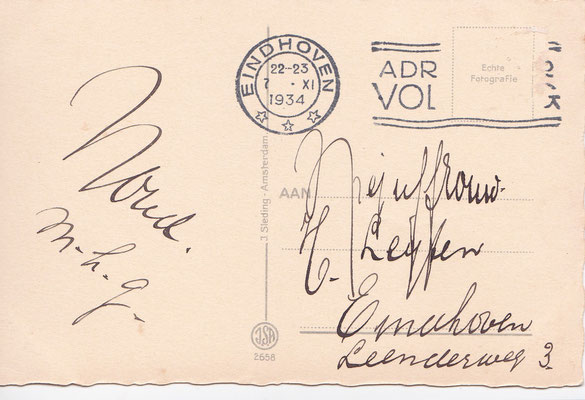 EINDHOVEN
22-23
7 · XI
1934
ADR
VOL
Echte
Fotografie
m.h.g.
J Sleding - Amsterdam
AAN
Mejuffrouw.
Eindhoven
Leenderweg 3.
JSA
2658